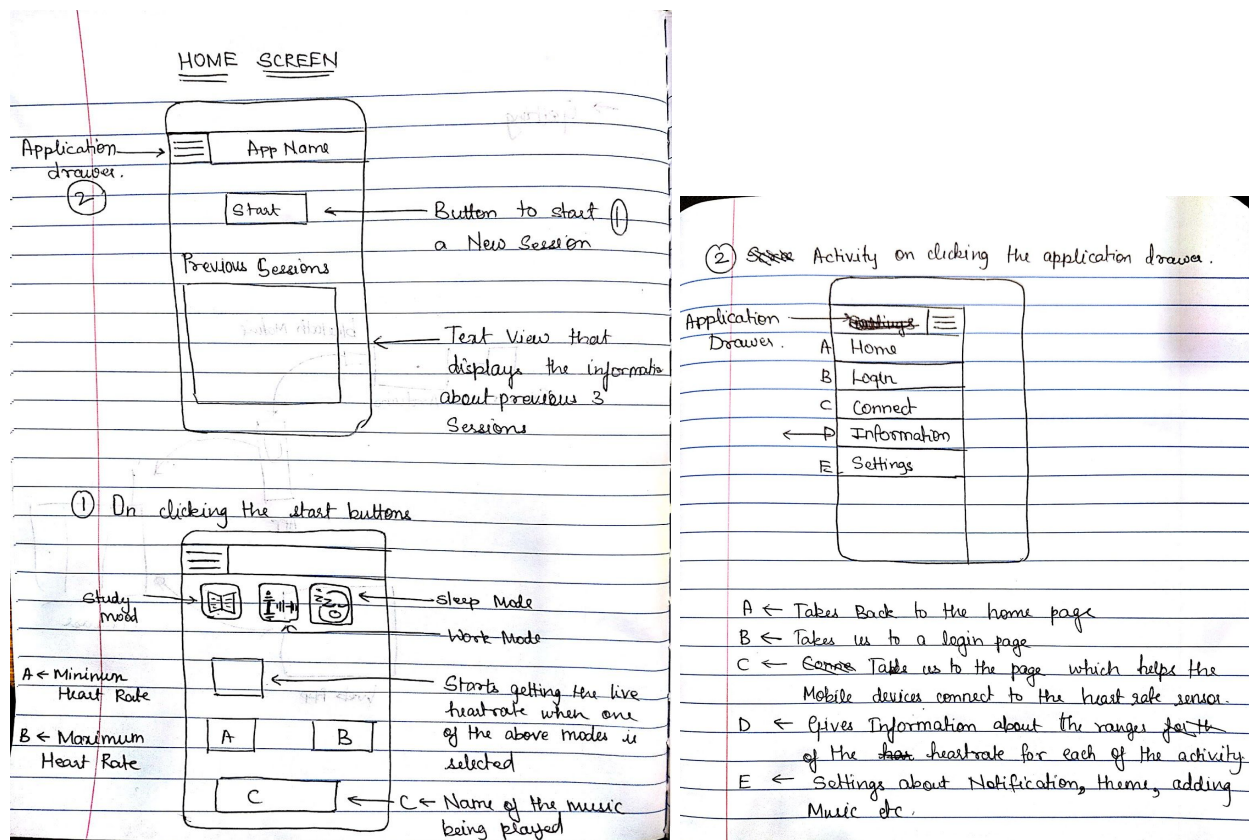 HOME SCREEN
Application
drawer.
②
App Name
Start
Button to start ①
a New Session
Previous Sessions
Text View that
displays the informatio
about previous 3
Sessions
① On clicking the start buttons
Study
mood
Sleep Mode
Work Mode
A ← Mininum
Heart Rate
Starts getting the live
heartrate when one
of the above modes is
selected
B ← Maximum
Heart Rate
A
B
C
C ← Name of the music
being played
② Activity on clicking the application drawer.
Application
Drawer.
A Home
B Login
C Connect
D Information
E Settings
A ← Takes Back to the home page
B ← Takes us to a login page
C ← Take us to the page which helps the
Mobile devices connect to the heart rate sensor.
D ← Gives Information about the ranges
of the heartrate for each of the activity
E ← Settings about Notification, theme, adding
Music etc.